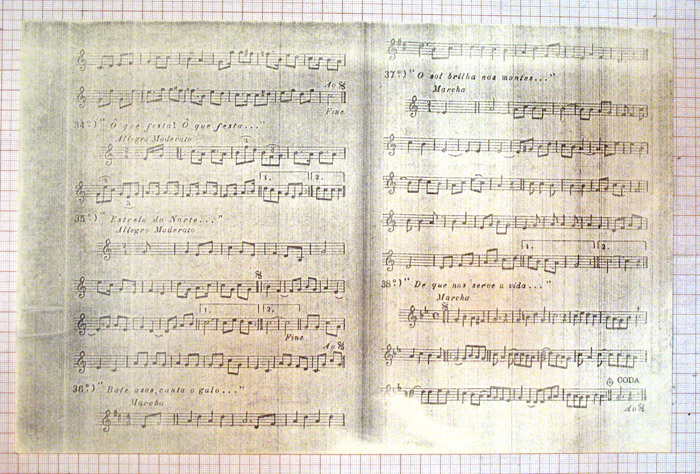 Ao 𝄋
Fine
34º) "Ó que festa! Ó que festa..."
Allegro Moderato
1. 2.
35º) "Estrela do Norte..."
Allegro Moderato
1. 2.
Fine
Ao 𝄋
36º) "Bate asas, canta o galo..."
Marcha
37º) "O sol brilha nos montes..."
Marcha
1. 2.
38º) "De que nos serve a vida..."
Marcha
CODA
Ao 𝄋